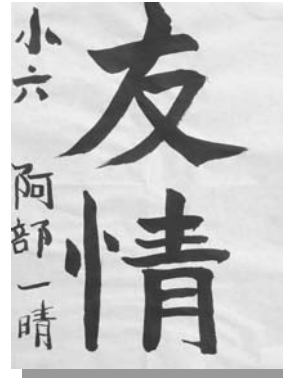 友情
小六 阿部一晴